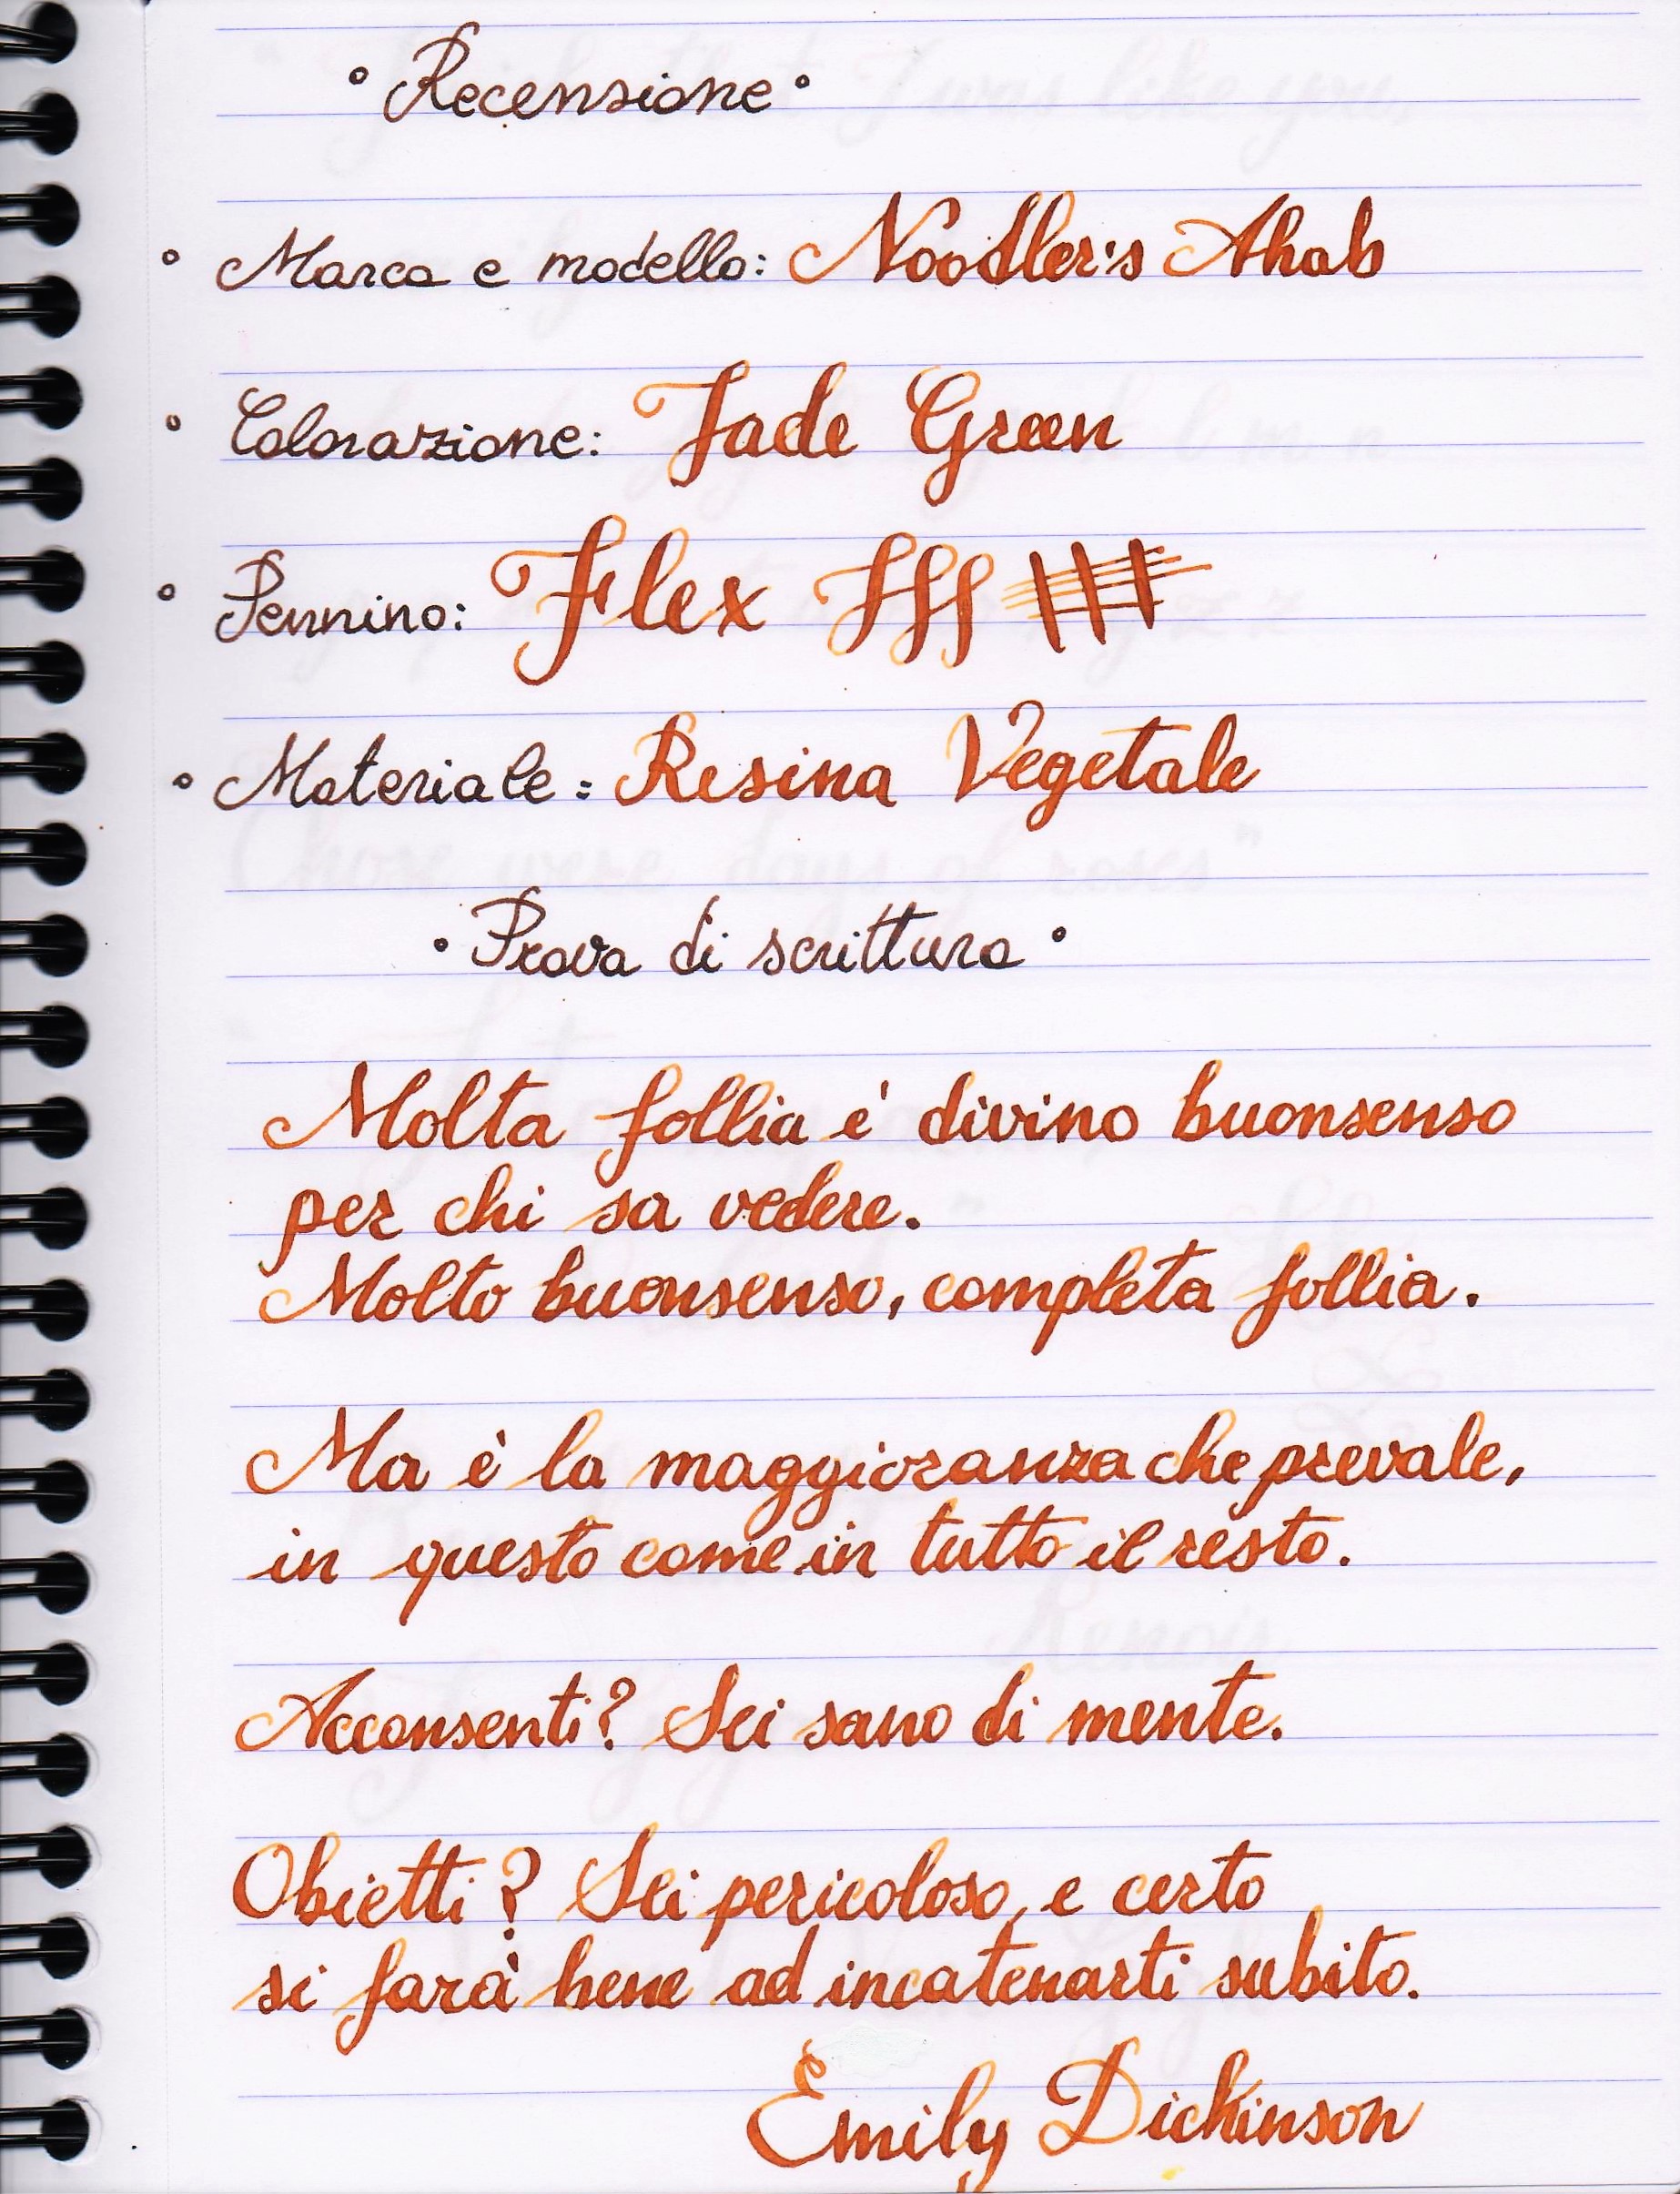 ° Recensione °
° Marca e modello: Noodler's Ahab
° Colorazione: Jade Green
° Pennino: Flex fff
° Materiale: Resina Vegetale
° Prova di scrittura °
Molta follia è divino buonsenso
per chi sa vedere.
Molto buonsenso, completa follia.
Ma è la maggioranza che prevale,
in questo come in tutto il resto.
Acconsenti? Sei sano di mente.
Obietti? Sei pericoloso, e certo
si farà bene ad incatenarti subito.
Emily Dickinson